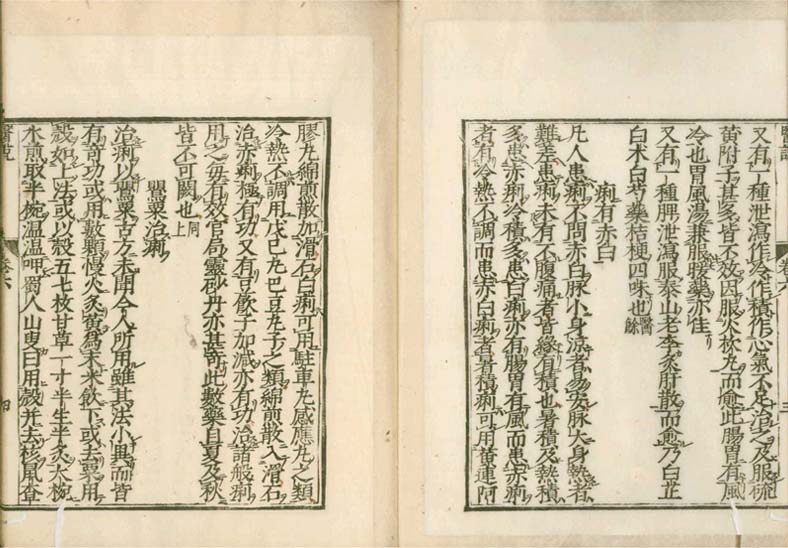 又有一種泄瀉作冷作積作心氣不足治之及服硫
黃附子甚多皆不效因服火枚丸而愈此腸胃有風
冷也胃風湯兼服暖藥亦佳
又有一種脾泄瀉服泰山老李炙肝散而愈乃白芷
白朮白芍藥桔梗四味也醫餘
痢有赤白
凡人患痢不問赤白脉小身涼者易安脉大身熱者
難差患痢未有不腹痛者皆緣有積也暑積及熱積
多患赤痢冷積多患白痢亦有腸胃有風而患赤痢
者有冷熱不調而患赤白痢者暑積痢可用黃連阿
膠丸綿煎散加滑石白痢可用駐車丸感應丸之類
冷熱不調用戊巳丸巴豆丸子之類綿煎散入滑石
治赤痢極有功又有豆飲子加減亦有功治諸般痢
用之每有效官局靈砂丹亦甚奇此數藥自夏及秋
皆不可闕也同上
罌粟治痢
治痢以罌粟古方未聞今人所用雖其法小異而皆
有奇功或用數顆慢火炙黃爲末米飲下或去粟用
殼如上法或以殼五七枚甘草一寸半生半炙大椀
水煎取半椀溫溫呷蜀人山叟曰用殼幷去核鼠査
醫說
卷六
三
卷六
四